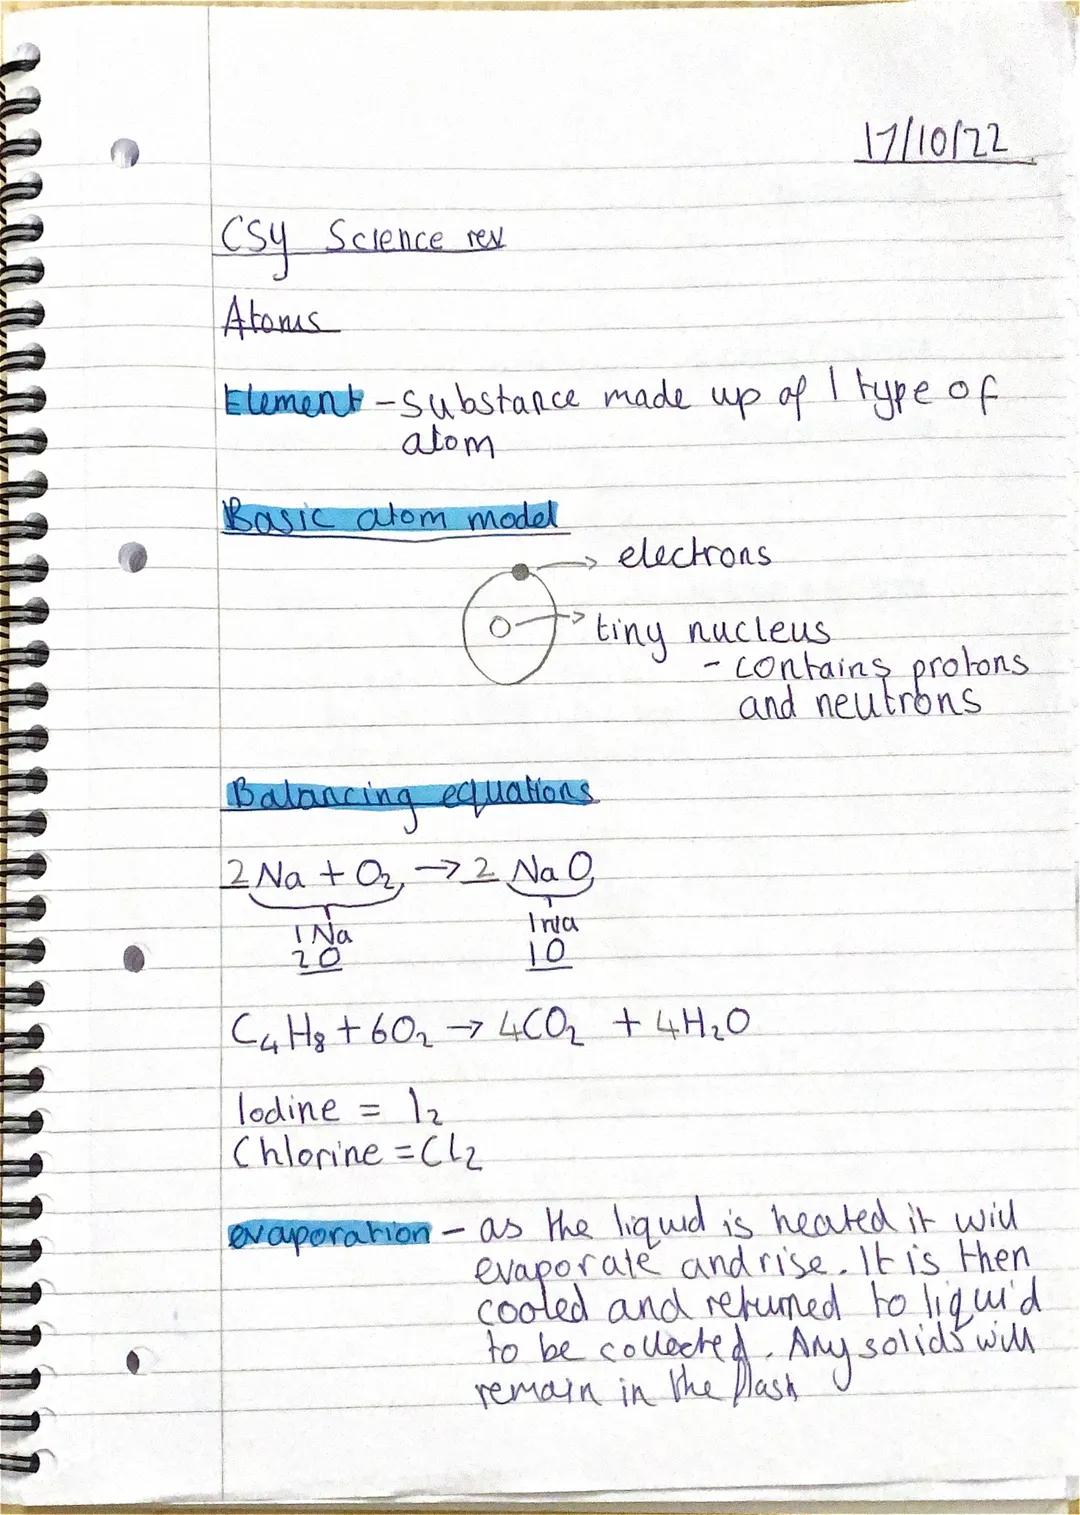 17/10/22
CSy Science rev
Atoms
Element - substance made up of 1 type of
atom
Basic atom model
→ electrons
→ tiny nucleus
- contains protons
and neutrons
Balancing equations
2Na + O₂ → 2 NaO
1 Na 1 Na
2 O 1 O
C₄H₈ + 6O₂ → 4CO₂ + 4H₂O
Iodine = I₂
Chlorine = Cl₂
evaporation - as the liquid is heated it will
evaporate and rise. It is then
cooled and returned to liquid
to be collected. Any solids will
remain in the flask